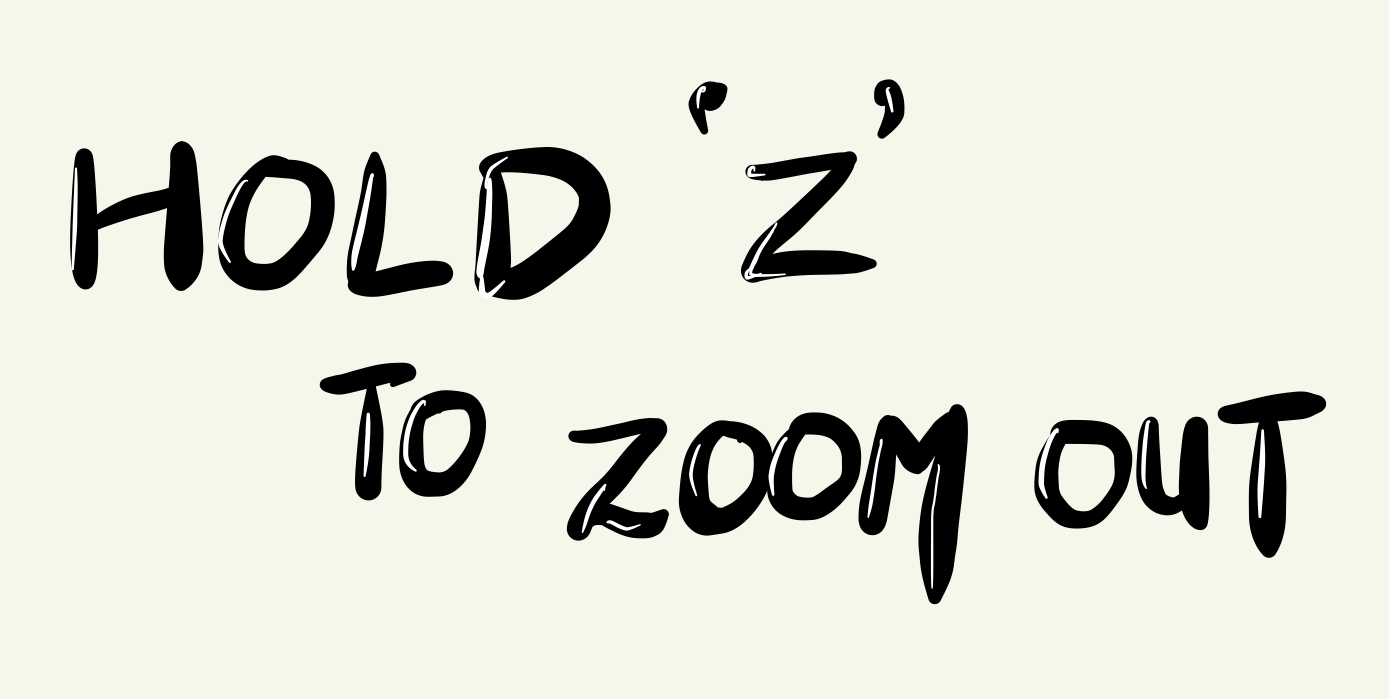 HOLD 'Z'
TO ZOOM OUT